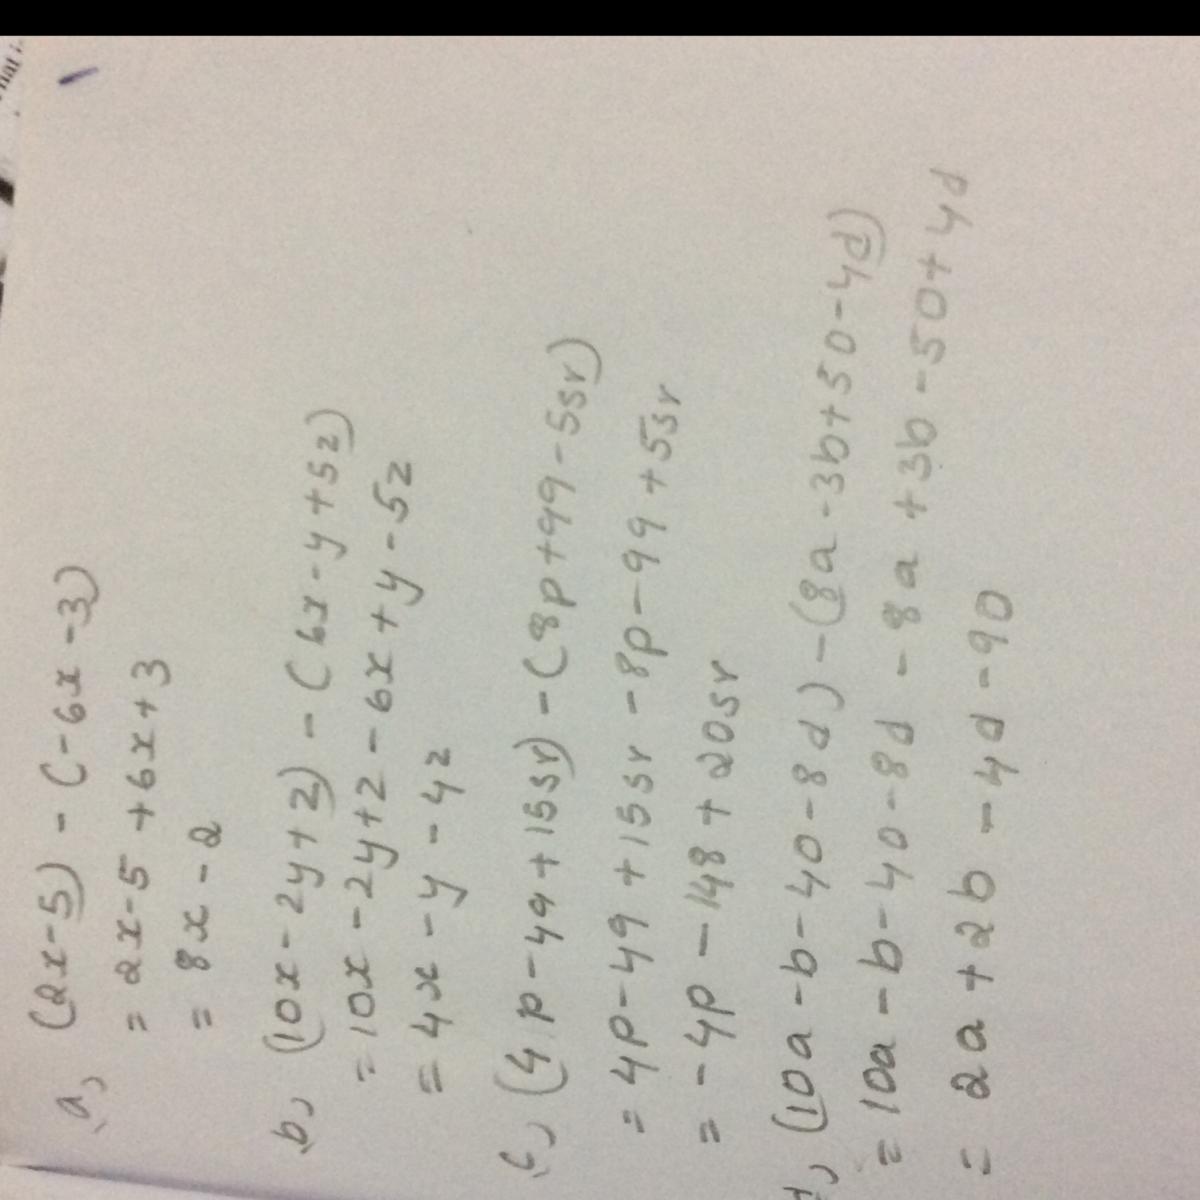 a, (2x-5) - (-6x-3)
= 2x-5 +6x+3
= 8x-2
b, (10x-2y+z) - (6x-y+5z)
= 10x-2y+z-6x+y-5z
= 4x-y-4z
c, (4p-49+15sr) - (8p+99-5sr)
= 4p-49+15sr-8p-99+5sr
= -4p-148+20sr
d, (10a-b-40-8d) - (8a-3b+50-4d)
= 10a-b-40-8d-8a+3b-50+4d
= 2a+2b-4d-90